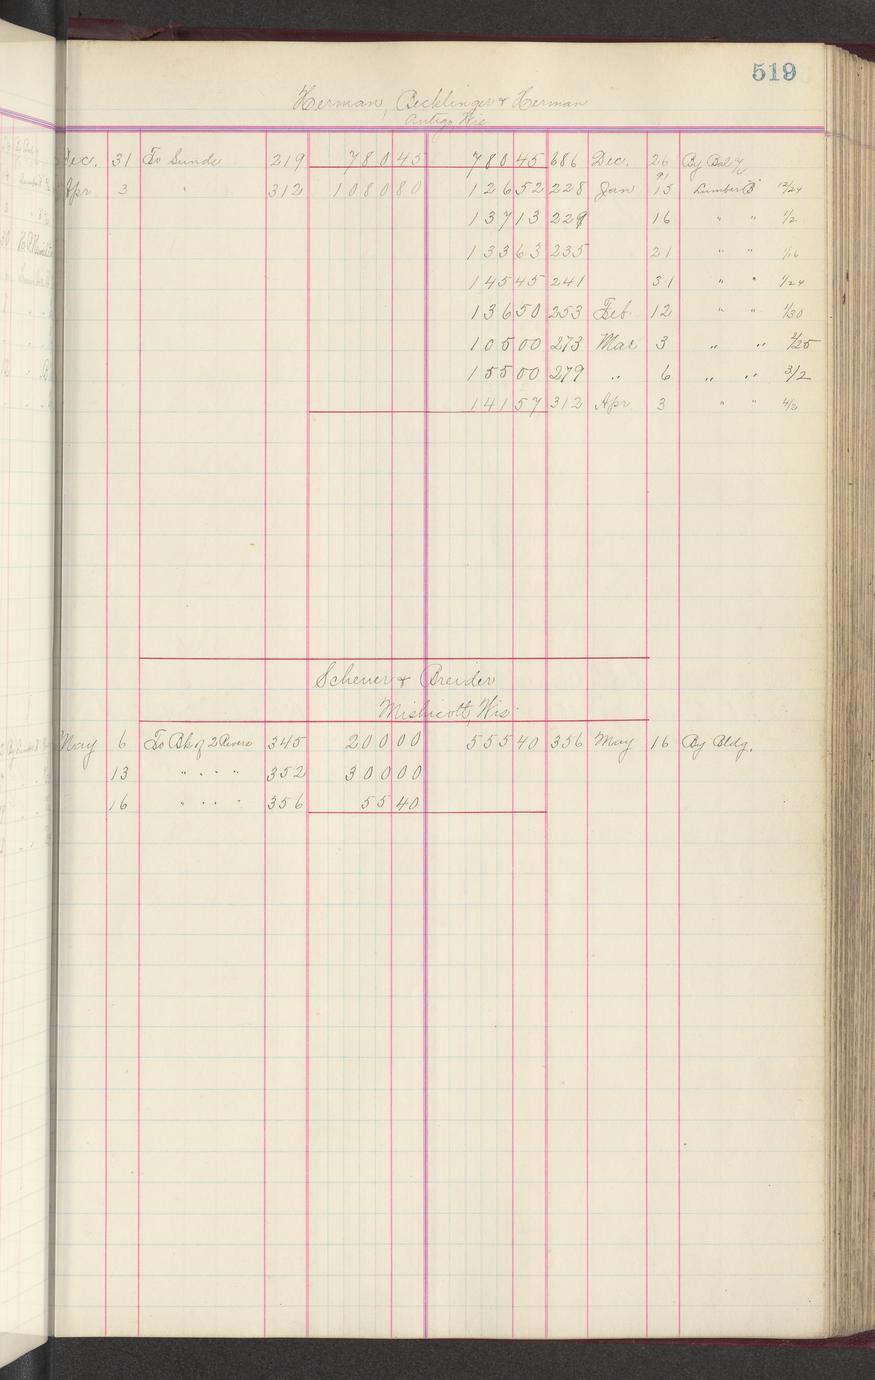 519
Herman, Becklinger & Herman
Antigo Wis
Dec. 31 To Sunds 219 780 45 780 45 686 Dec. 26 By Bal
91
Apr 3 " 312 1080 80 126 52 228 Jan 15 Lumber B 12/24
137 13 229 16 " " 1/2
133 63 235 21 " " 1/16
145 45 241 31 " " 1/24
136 50 253 Feb. 12 " " 1/30
105 00 273 Mar 3 " " 2/25
155 00 279 " 6 " " 3/2
141 57 312 Apr 3 " " 4/2
Scheuer & Breider
Mishicott, Wis.
May 6 To Bk of 2 Rivers 345 200 00 555 40 356 May 16 By Bldg.
13 " " " " 352 300 00
16 " " " " 356 55 40